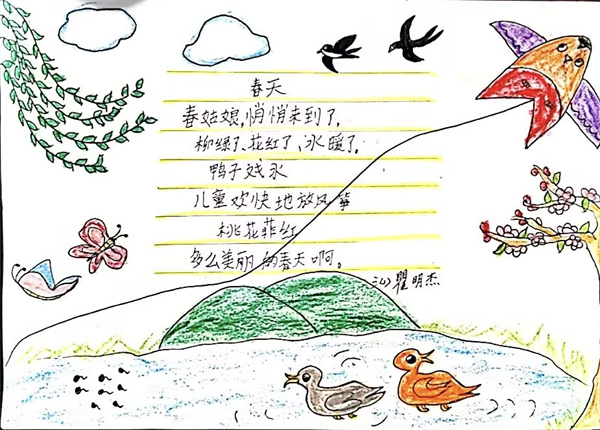 春天
春姑娘,悄悄来到了,
柳绿了、花红了、水暖了,
鸭子戏水
儿童欢快地放风筝
桃花菲红
多么美丽的春天啊。
三(4)瞿明杰